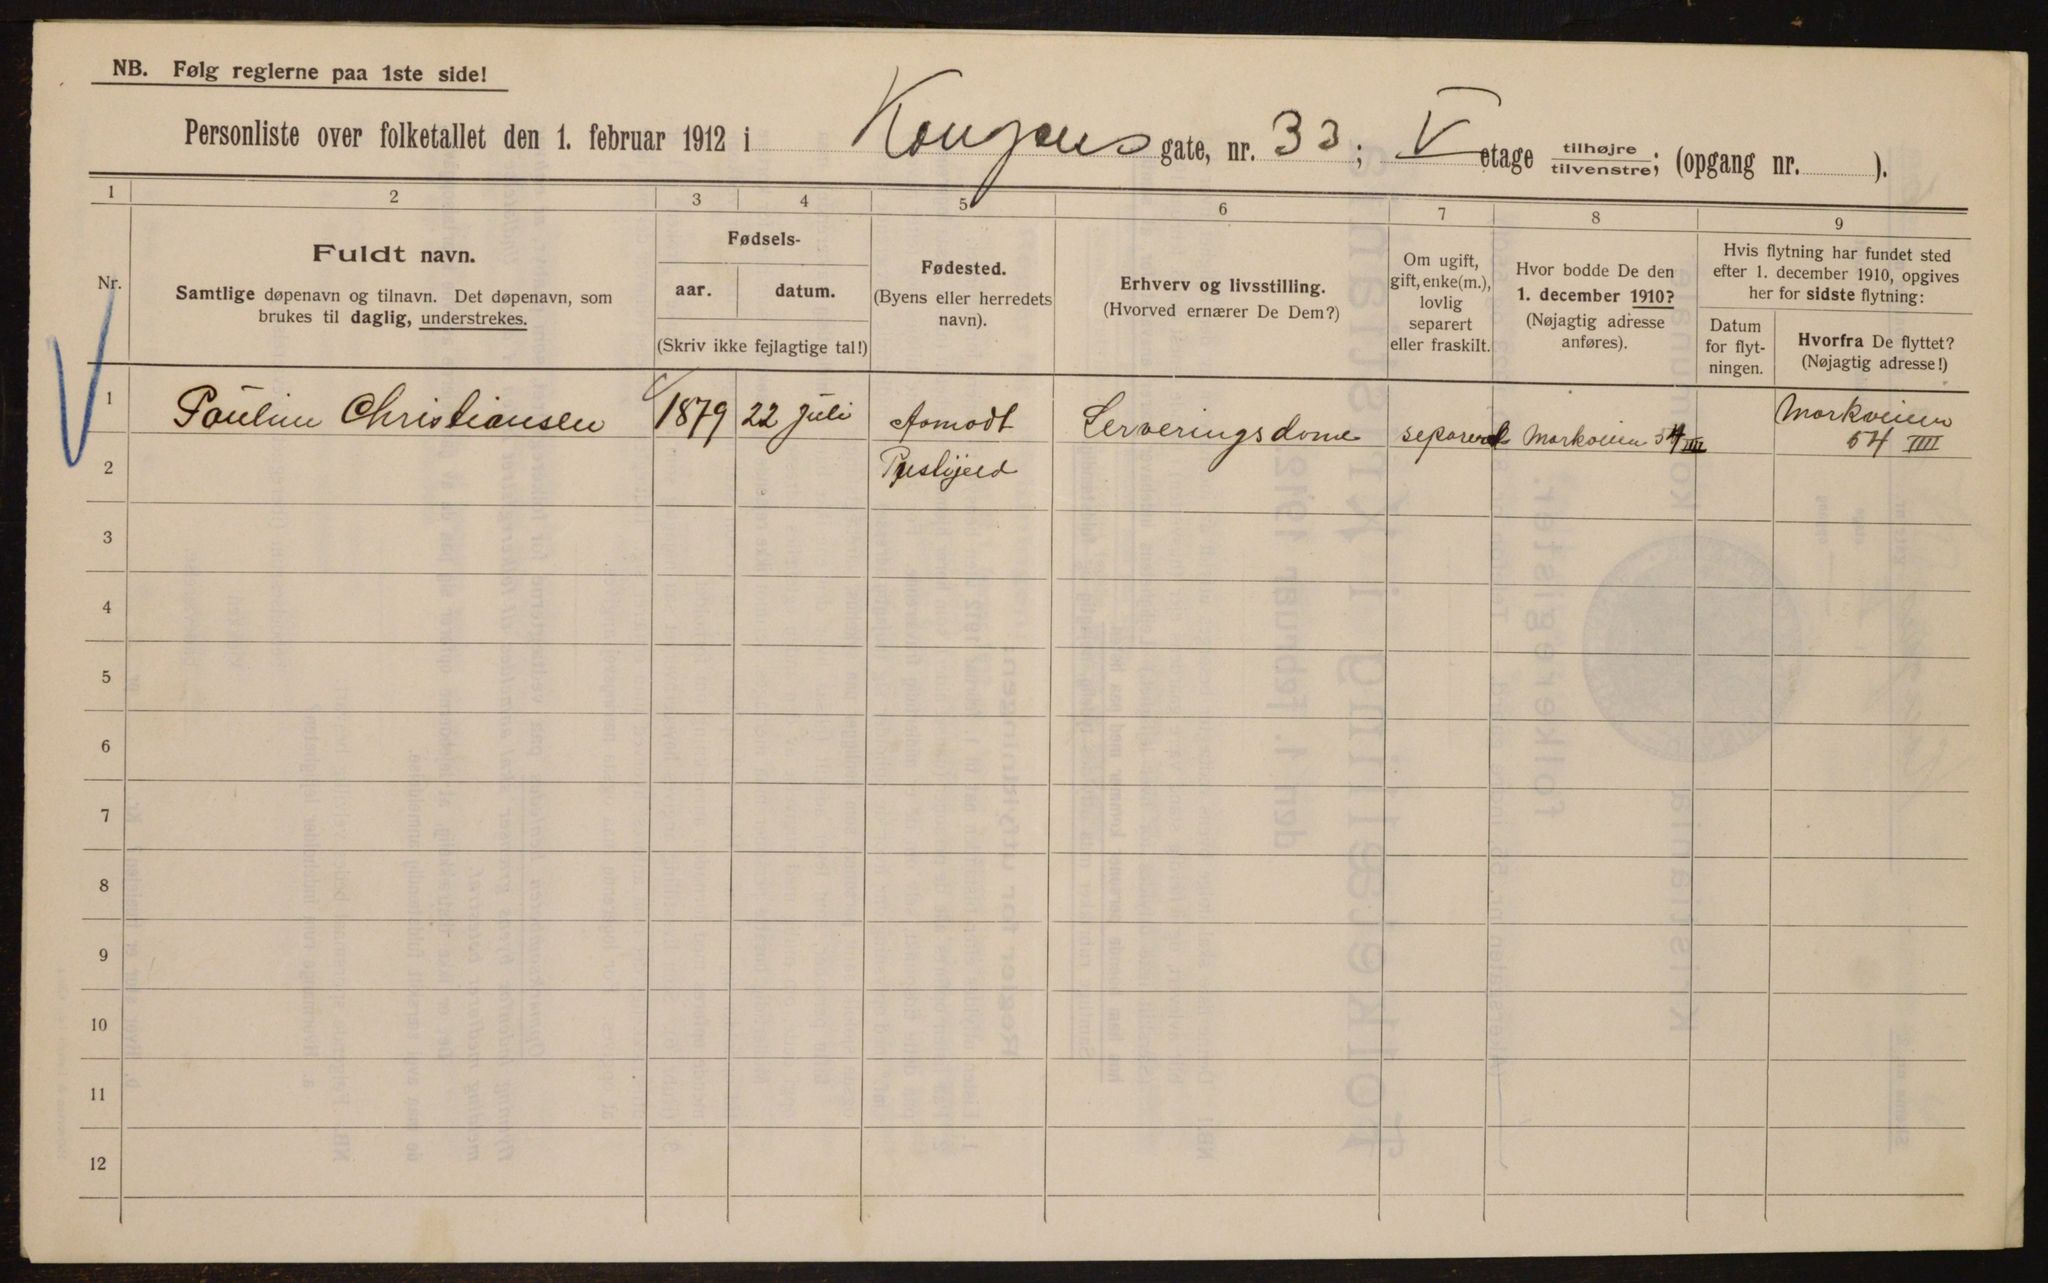 NB. Følg reglerne paa 1ste side!
Personliste over folketallet den 1. februar 1912 i Kongens gate, nr. 33; V etage tilhøjre/tilvenstre; (opgang nr. ).
1 2 3 4 5 6 7 8 9
Nr.
Fuldt navn.
Samtlige døpenavn og tilnavn. Det døpenavn, som
brukes til daglig, understrekes.
Fødsels-
aar. datum.
(Skriv ikke fejlagtige tal!)
Fødested.
(Byens eller herredets
navn).
Erhverv og livsstilling.
(Hvorved ernærer De Dem?)
Om ugift,
gift, enke(m.),
lovlig
separert
eller fraskilt.
Hvor bodde De den
1. december 1910?
(Nøjagtig adresse
anføres).
Hvis flytning har fundet sted
efter 1. december 1910, opgives
her for sidste flytning:
Datum
for flyt-
ningen.
Hvorfra De flyttet?
(Nøjagtig adresse!)
1 Paulin Christiansen 1879 22 juli Aamodt Serveringsdame separert Markveien 54 IIII Markveien
54 IIII
2 Prestgjeld
3
4
5
6
7
8
9
10
11
12